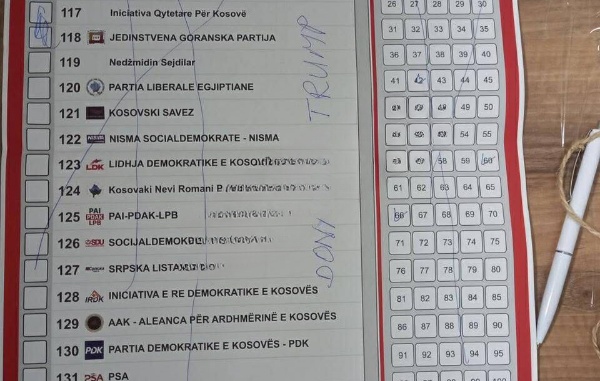 117 Iniciativa Qytetare Për Kosovë
118 JEDINSTVENA GORANSKA PARTIJA
119 Nedžmidin Sejdilar
120 PARTIA LIBERALE EGJIPTIANE
121 KOSOVSKI SAVEZ
122 NISMA SOCIALDEMOKRATE - NISMA
123 LDK LIDHJA DEMOKRATIKE E
124 Kosovaki Nevi Romani
125 PAI PDAK LPB PAI-PDAK-LPB
126 SDU
127 SRPSKA LISTA
128 IRDK INICIATIVA E RE DEMOKRATIKE E KOSOVËS
129 AAK - ALEANCA PËR ARDHMËRINË E KOSOVËS
130 PDK PARTIA DEMOKRATIKE E KOSOVËS - PDK
131 PSA PSA
TRUMP
DONY
26 27 28 29 30
31 32 33 34 35
36 37 38 39 40
41 42 43 44 45
49 50
54 55
58 59 60
61 62 63 64 65
66 67 68 69 70
71 72 73 74 75
76 77 78 79 80
81 82 83 84 85
86 87 88 89 90
91 92 93 94 95